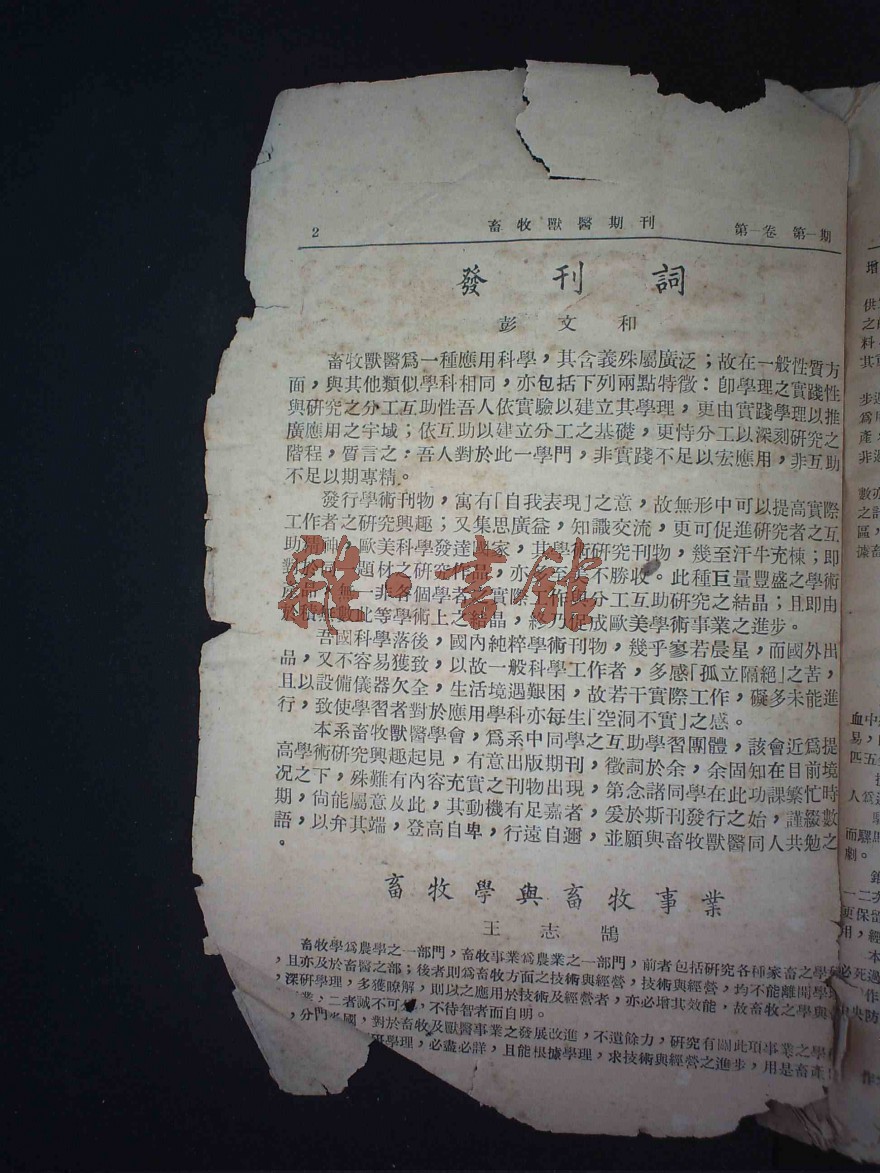 2 畜牧獸醫期刊 第一卷 第一期
發刊詞
彭文和
畜牧獸醫爲一種應用科學，其含義殊屬廣泛；故在一般性質方
面，與其他類似學科相同，亦包括下列兩點特徵：卽學理之實踐性
與研究之分工互助性吾人依實驗以建立其學理，更由實踐學理以推
廣應用之宇域；依互助以建立分工之基礎，更恃分工以深刻研究之
階程，質言之：吾人對於此一學門，非實踐不足以宏應用，非互助
不足以期專精。
發行學術刊物，寓有「自我表現」之意，故無形中可以提高實際
工作者之研究興趣；又集思廣益，知識交流，更可促進研究者之互
助精神，歐美科學發達國家，其學術研究刊物，幾至汗牛充棟；即
對於同一題材之研究作品，亦多至美不勝收。此種巨量豐盛之學術
產品，無一非各個學者之實際工作與分工互助研究之結晶；且即由
於積無數此等學術上之結晶，終乃促成歐美學術事業之進步。
吾國科學落後，國內純粹學術刊物，幾乎寥若晨星，而國外出
品，又不容易獲致，以故一般科學工作者，多感「孤立隔絕」之苦，
且以設備儀器欠全，生活境遇艱困，故若干實際工作，礙多未能進
行，致使學習者對於應用學科亦每生「空洞不實」之感。
本系畜牧獸醫學會，爲系中同學之互助學習團體，該會近爲提
高學術研究興趣起見，有意出版期刊，徵詞於余，余固知在目前境
況之下，殊難有內容充實之刊物出現，第念諸同學在此功課繁忙時
期，尙能屬意及此，其動機有足嘉者，爰於斯刊發行之始，謹綴數
語，以弁其端，登高自卑，行遠自邇，並願與畜牧獸醫同人共勉之
。
畜牧學與畜牧事業
王志鵠
畜牧學爲農學之一部門，畜牧事業爲農業之一部門，前者包括研究各種家畜之學
，且亦及於畜醫之部；後者則爲畜牧方面之技術與經營，技術與經營，均不能離開學
，深研學理，多獲瞭解，則以之應用於技術及經營者，亦必增其效能，故畜牧之學與
業，二者誠不可分，不待智者而自明。
，分門 國，對於畜牧及獸醫事業之發展改進，不遺餘力，研究有關此項事業之學
研學理，必盡必詳，且能根據學理，求技術與經營之進步，用是畜產
雜·書館